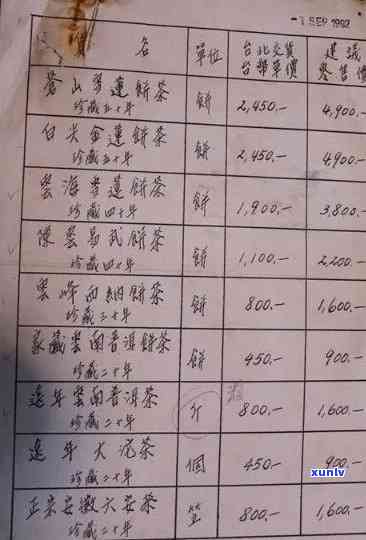 -1 SEP 1992
品 名 單位 台北交貨 台幣單價 建議 零售價
蒼山雪蓮餅茶 餅 2,450.- 4,900.-
珍藏五十年
白尖金蓮餅茶 餅 2,450.- 4,900.-
珍藏五十年
雲海雪蓮餅茶 餅 1,900.- 3,800.-
珍藏四十年
陳雲易武餅茶 餅 1,100.- 2,200.-
珍藏四十年
雲峰西納餅茶 餅 800.- 1,600.-
珍藏三十年
家藏雲南普洱餅茶 餅 450.- 900.-
珍藏二十年
遠年雲南普洱茶 斤 800.- 1,600.-
珍藏二十年
遠年大沱茶 個 450.- 900.-
珍藏二十年
正宗安徽六安茶 簍 800.- 1,600.-
珍藏二十年
xunlv